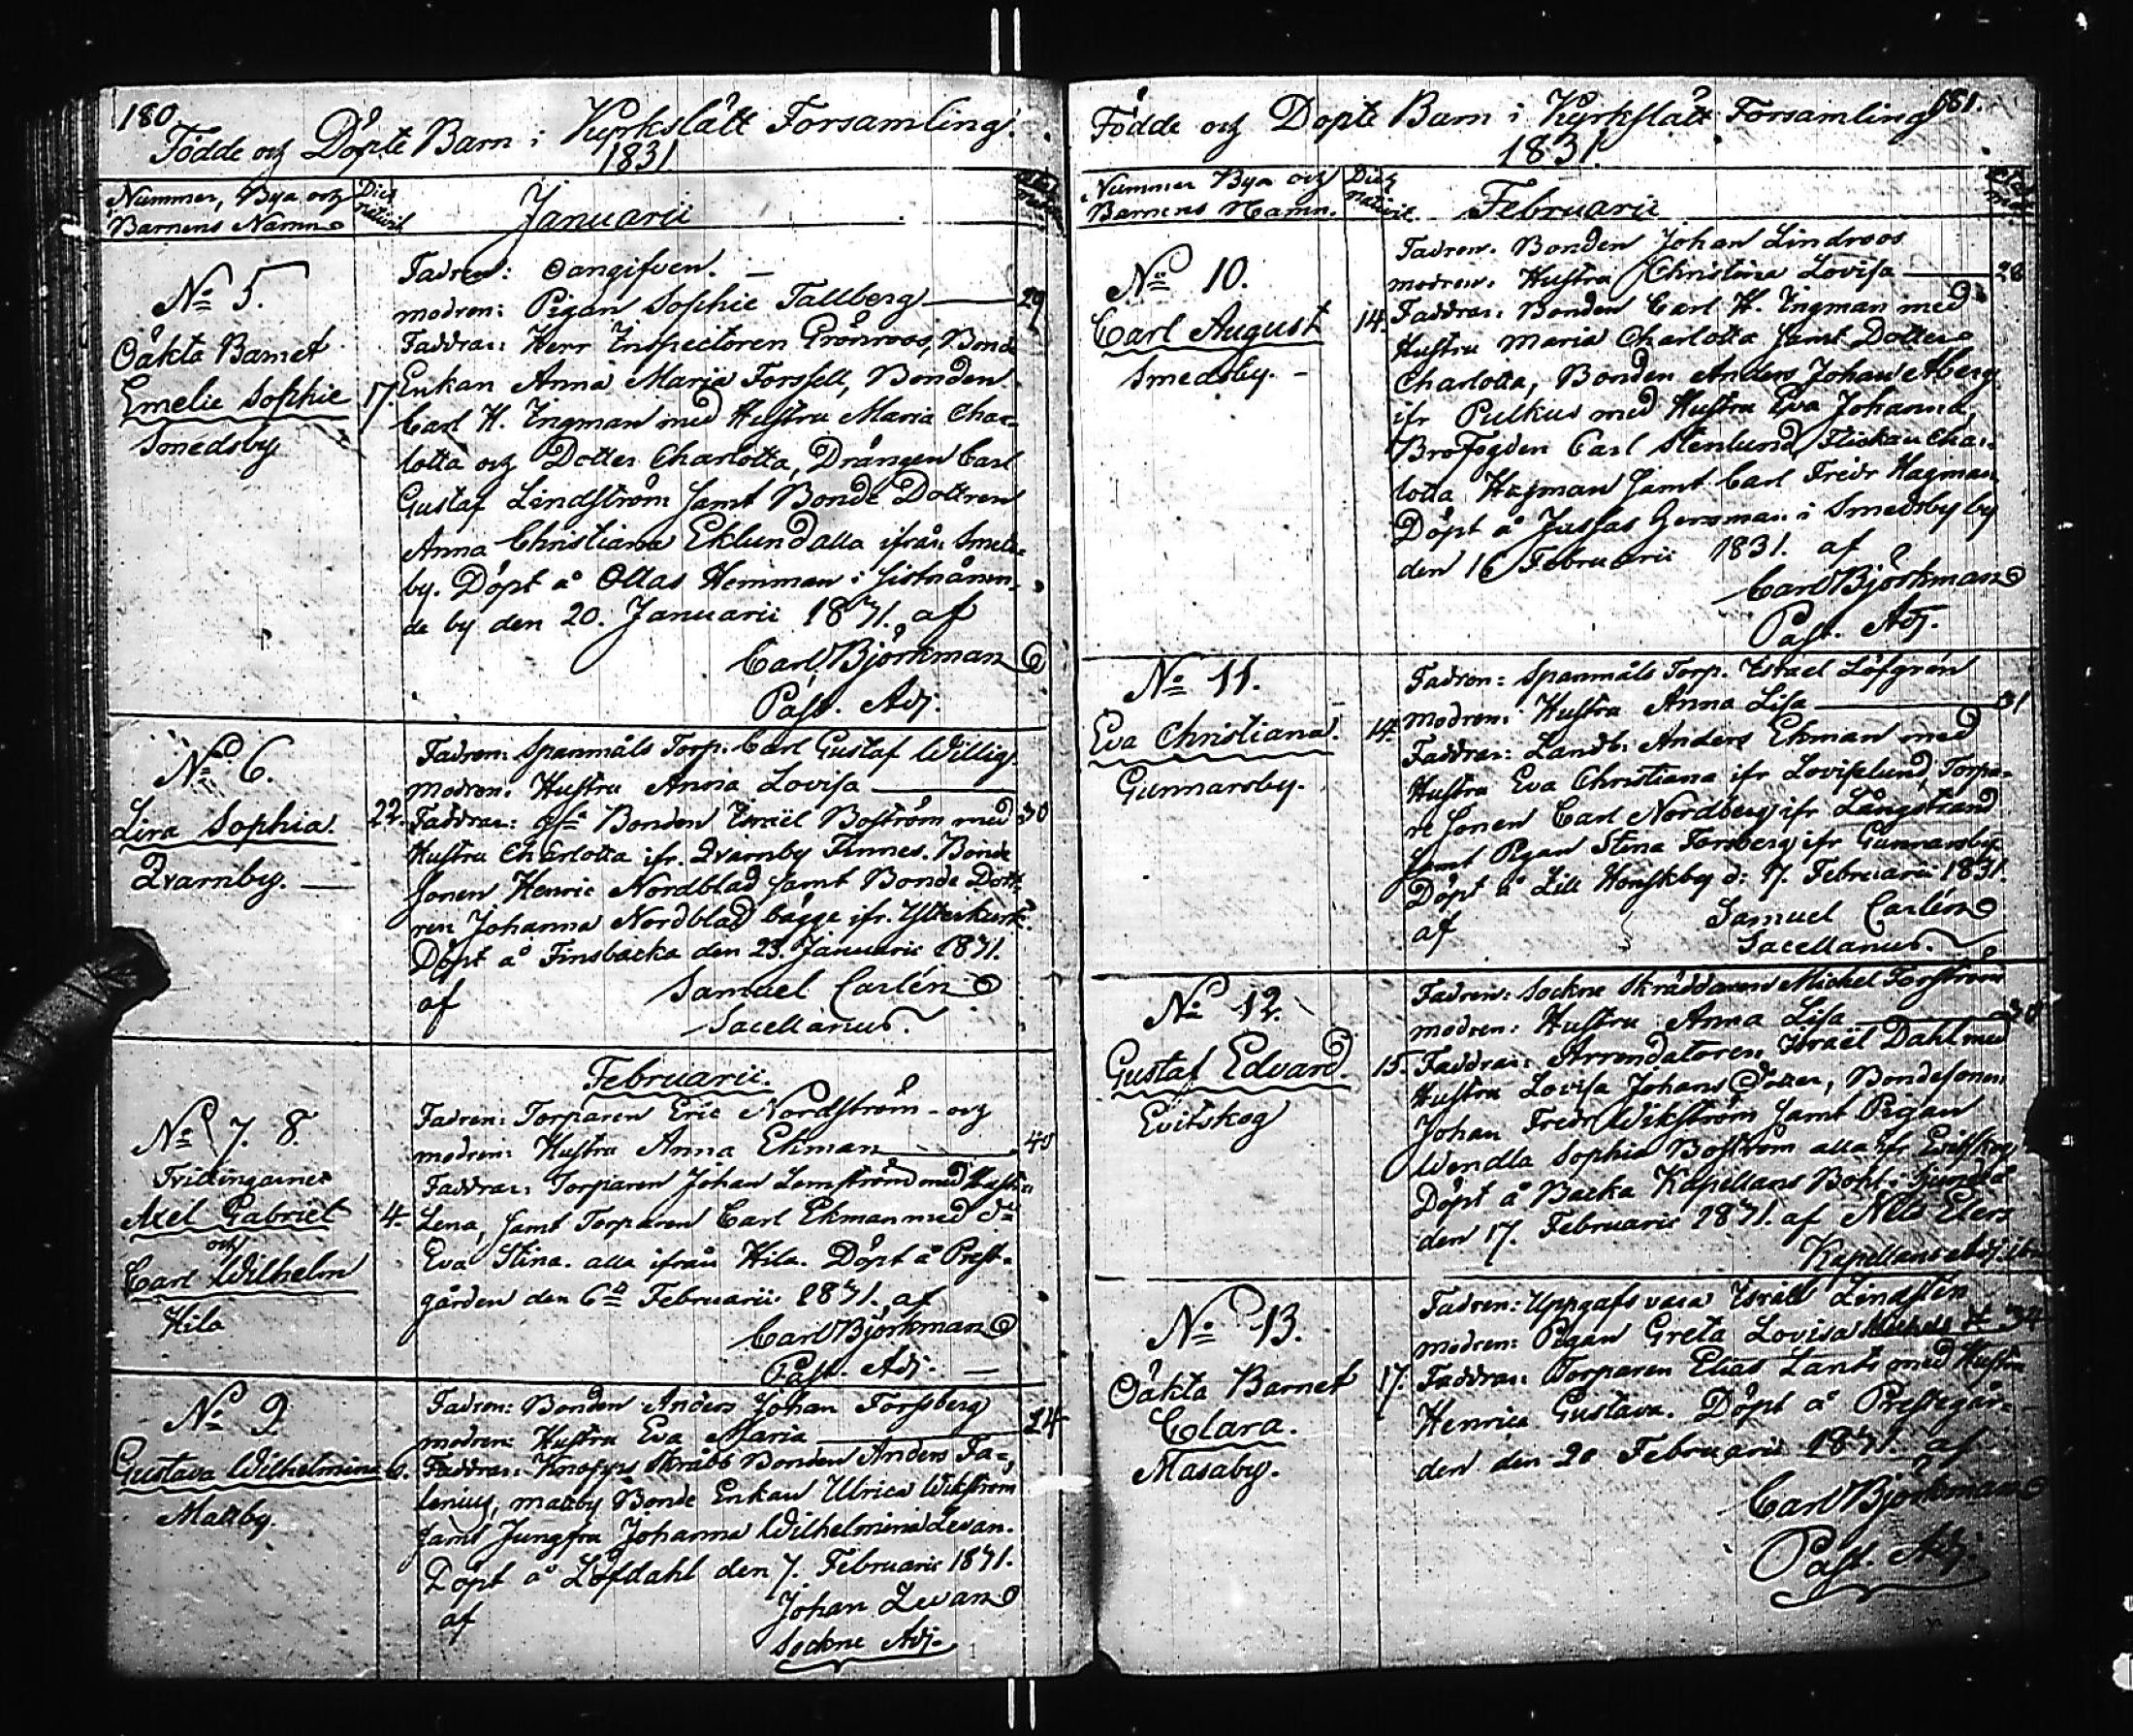 180
Födde och Döpte Barn i Kyrkslätt Forsamling.
1831
Nummer, Bya och
Barnens Namn
Dies
Nativit
Januarii
No 5.
Oäkta Barnet
Emelie Sophie
Smedsby
17.
Fadren: Oangifven. —
modren: Pigan Sophie Tallberg — 29
Faddrar: Herr Inspectoren Grönroos, Bonde
Enkan Anna Maria Forssell, Bonden
Carl H. Ingman med Hustru Maria Char-
lotta och Dotter Charlotta, Drängen Carl
Gustaf Lindström samt Bonde Dottren
Anna Christiana Eklund alla ifrån Smeds-
by. Döpt å Ollas Hemman i
de by den 20. Januarii 1831. af
Carl Björkman
Past. Adj.
No 6.
Lira Sophia.
Qvarnby. —
22.
Fadren: Spanmåls Torp. Carl Gustaf Willig.
modren: Hustru Anna Lovisa — 30
Faddrar: Bonden Israël Boström med
Hustru Charlotta ifr. Qvarnby Finnes. Bonde
Sonen Henric Nordblad samt Bonde Dott-
ren Johanna Nordblad bägge ifr. Ytterkurk.
Döpt å Finsbacka den 23. Januarii 1831.
af Samuel Carlén
Sacellanus.
Februarii.
No 7. 8.
Tvillingarne
Axel Gabriel
och
Carl Wilhelm
Hila
4.
Fadren: Torparen Eric Nordström - och
modren: Hustru Anna Ekman — 40
Faddrar: Torparen Johan Lemström med Hustru
Lena, samt Torparen Carl Ekman med do
Eva Stina. alla ifrån Hila. Döpt å Prest-
gården den 6te Februarii 1831. af
Carl Björkman
Past. Adj. —
No 9
Gustava Wilhelmina
Mattby.
6.
Fadren: Bonden Anders Johan Forssberg 24
modren: Hustru Eva Maria —
Faddrar: Knapps Skräbb Bonden Anders Fa-
lenius, Mattby Bonde Enkan Ulrica Wikström
samt Jungfru Johanna Wilhelmina Levan.
Döpt å Löfdahl den 7. Februarii 1831.
af Johan Levan
Sockne Adj.
181.
Födde och Döpte Barn i Kyrkslätt Forsamling
1831.
Nummer Bya och
Barnens Namn.
Dies
Nativit.
Februarii
No 10.
Carl August
Smedsby. -
14.
Fadren. Bonden Johan Lindroos
modren. Hustru Christina Lovisa — 28
Faddrar: Bonden Carl H. Ingman med
Hustru Maria Charlotta samt Dotter
Charlotta, Bonden Anders Johan Åberg
ifr Pulkus med Hustru Eva Johanna,
Brofogden Carl Stenlund, Flickan Char-
lotta Hagman samt Carl Fredr Hagman
Döpt å Jussas Hemman i Smedsby by
den 16 Februarii 1831. af
Carl Björkman
Past. Adj.
No 11.
Eva Christiana.
Gunnarsby.
14.
Fadren: Spanmåls Torp. Israel Löfgrén
Modren: Hustru Anna Lisa — 31
Faddrar: Landb: Anders Ekman med
Hustru Eva Christiana ifr Lovisælund, Torpa-
re Sonen Carl Nordberg ifr Långstrand
samt Pigan Stina Forsberg ifr Gunnarsby
Döpt å Lill Honskby d: 17. Februarii 1831.
af Samuel Carlén
Sacellanus.
No 12.
Gustaf Edvard.
Evitskog
15.
Fadren: Sockne Skräddaren Michel Forström
modren: Hustru Anna Lisa —
Faddrar: Arrendatoren Israël Dahl med
Hustru Lovisa Johans Dotter, Bondesonen
Johan Fredr Wikström samt Pigan
Wendla Sophia Boström alla ifr Evitskog
Döpt å Backa Kapellans Bohl i Sjundeå
den 17. Februarii 1831. af Nils Elers
Kapellans Adj. ibm
No 13.
Oäkta Barnet
Clara.
Masaby.
17.
Fadren: Uppgafs vara Israël Lindstén
modren: Pigan Greta Lovisa 34
Faddrar: Torparen Elias Lants med Hustru
Henrica Gustava. Döpt å Prestegår-
den den 20 Februarii 1831. af
Carl Björkman
Past. Adj.